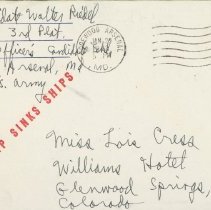 Walter
3rd Plat.
Officer's Candidate
Arsenal, Md
S. Army
ARSENAL
JAN
MD.
P SINKS SHIPS
Miss Lois Cress
Williams Hotel
Glenwood Springs,
Colorado